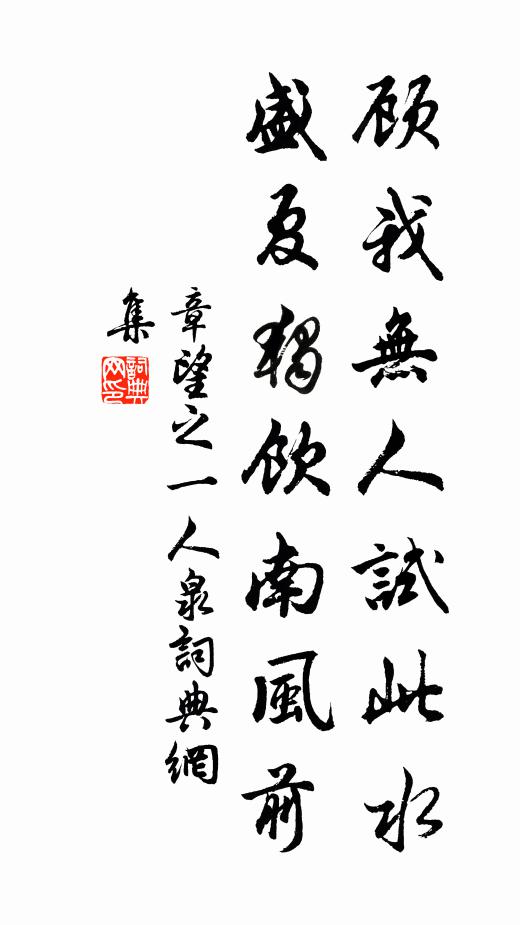 顧我無人試此水
盛夏獨飲南風前
章望之一人泉詞典網
集
詞典网印